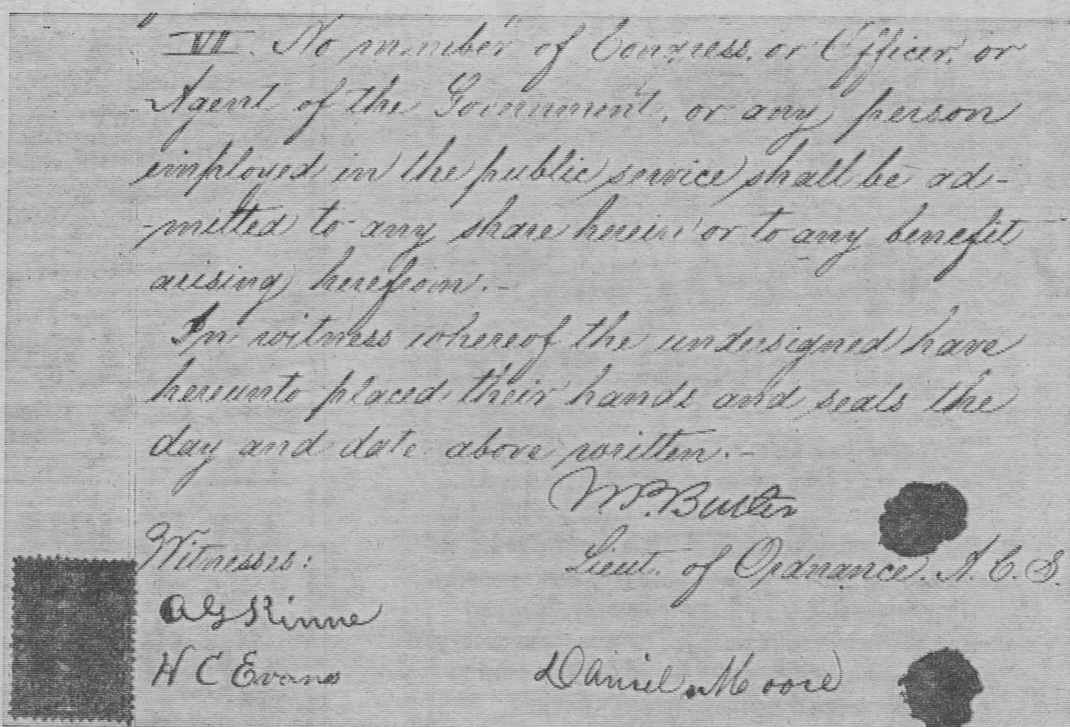 VI. No member of Congress, or Officer, or
Agent of the Government, or any person
employed in the public service shall be ad-
-mitted to any share herein or to any benefit
arising herefrom.-
In witness whereof the undersigned have
hereunto placed their hands and seals the
day and date above written.-
Witnesses:
Lieut. of Ordnance. A. C. S.
H C Evans
Daniel Moore